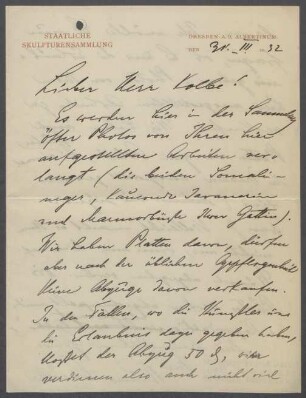 STAATLICHE
SKULPTURENSAMMLUNG
DRESDEN-A. 1, ALBERTINUM
DEN 31. III. 32
Lieber Herr Kolbe!
Es werden hier in der Sammlung
öfter Photos von Ihren hier
aufgestellten Arbeiten ver-
langt (die beiden Somali-
neger, kauernde Javanerin
und Marmorbüste Ihrer Gattin).
Wir haben Platten davon, dürfen
aber nach der üblichen Gepflogenheit
keine Abzüge davon verkaufen.
In den Fällen, wo die Künstler uns
die Erlaubnis dazu gegeben haben,
kostet der Abzug 50 ₰, wir
verdienen also auch nicht viel